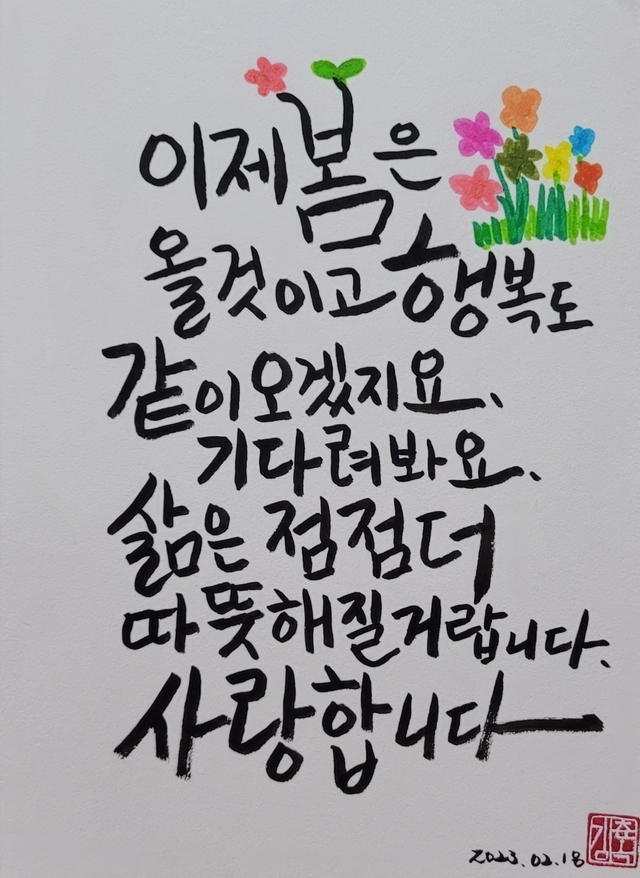 이제 봄은
올 것이고 행복도
같이 오겠지요.
기다려봐요.
삶은 점점 더
따뜻해질거랍니다.
사랑합니다
2023.02.18